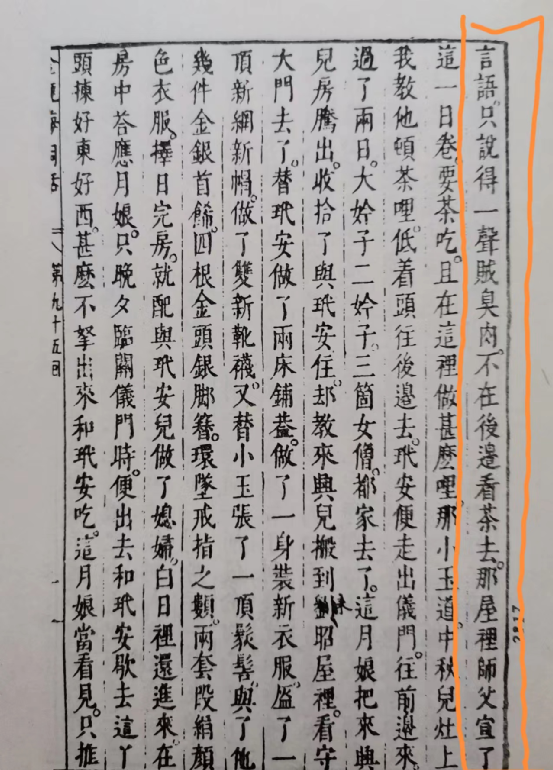 2817
言語。只說得一聲賊臭肉。不在後邊看茶去。那屋裡師父宣了
這一日卷。要茶吃。且在這裡做甚麼哩。那小玉道。中秋兒灶上
我教他頓茶哩。低着頭往後邊去。玳安便走出儀門。往前邊來。
過了兩日。大妗子二妗子。三箇女僧。都家去了。這月娘把來興
兒房騰出。收拾了與玳安住。却教來興兒搬到來昭屋裡。看守
大門去了。替玳安做了兩床鋪蓋。做了一身裝新衣服。盔了一
頂新網新帽。做了雙新靴襪。又替小玉張了一頂䯼髻。與了他
幾件金銀首飾。四根金頭銀脚簪。環墜戒指之類。兩套段絹顏
色衣服。擇日完房。就配與玳安兒做了媳婦。白日裡還進來。在
房中荅應月娘。只晚夕臨關儀門時。便出去和玳安歇去。這丫
頭揀好東好西。甚麼不拏出來和玳安吃。這月娘當看見。只推
梅詞話 第九十五回